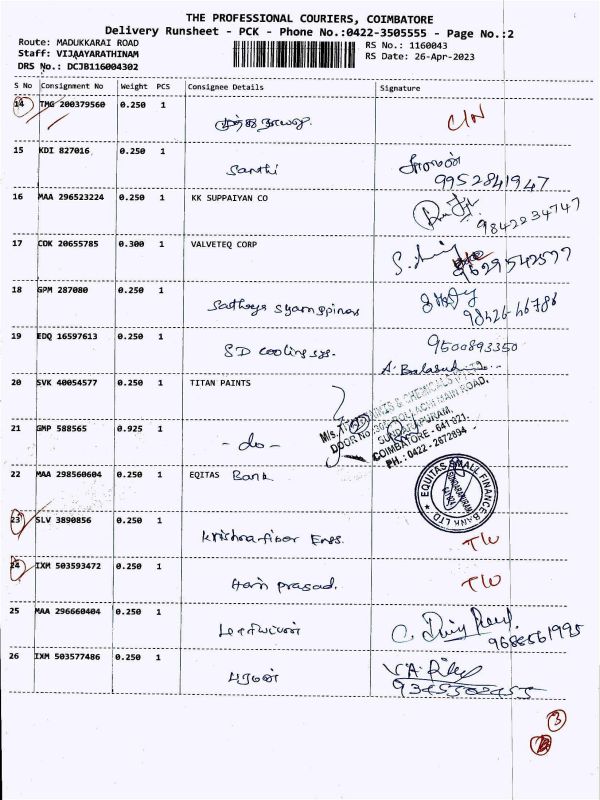 THE PROFESSIONAL COURIERS, COIMBATORE
Delivery Runsheet - PCK - Phone No.:0422-3505555 - Page No.:2
Route: MADUKKARAI ROAD
Staff: VIJAAYARATHINAM
DRS No.: DCJB116004302
RS No.: 1160043
RS Date: 26-Apr-2023
S No Consignment No Weight PCS Consignee Details Signature
14 TMG 200379560 0.250 1
C/N
15 KDI 827016 0.250 1
Santhi
9952841947
16 MAA 296523224 0.250 1 KK SUPPAIYAN CO
9842834747
17 COK 20655785 0.300 1 VALVETEQ CORP
9629542577
18 GPM 287080 0.250 1
Sathya Syamspinns
98426-46786
19 EDQ 16597613 0.250 1
SD cooling sys.
9500893350
A. Balasub
20 SVK 40054577 0.250 1 TITAN PAINTS
M/s. TITAN PAINTS & CHEMICALS
DOOR NO. POLLACHI MAIN ROAD,
SUNDARAPURAM,
COIMBATORE - 641 021.
PH.: 0422 - 2672894
21 GMP 588565 0.925 1
- do -
22 MAA 298560604 0.250 1 EQITAS Bank
EQUITAS SMALL FINANCE BANK LTD
SUNDARAPURAM
23 SLV 3890856 0.250 1
Krishna fiber Engs.
T/W
24 IXM 503593472 0.250 1
Hari prasad.
T/W
25 MAA 296660404 0.250 1
9688561995
26 IXM 503577486 0.250 1
V.A.
9345502455
3